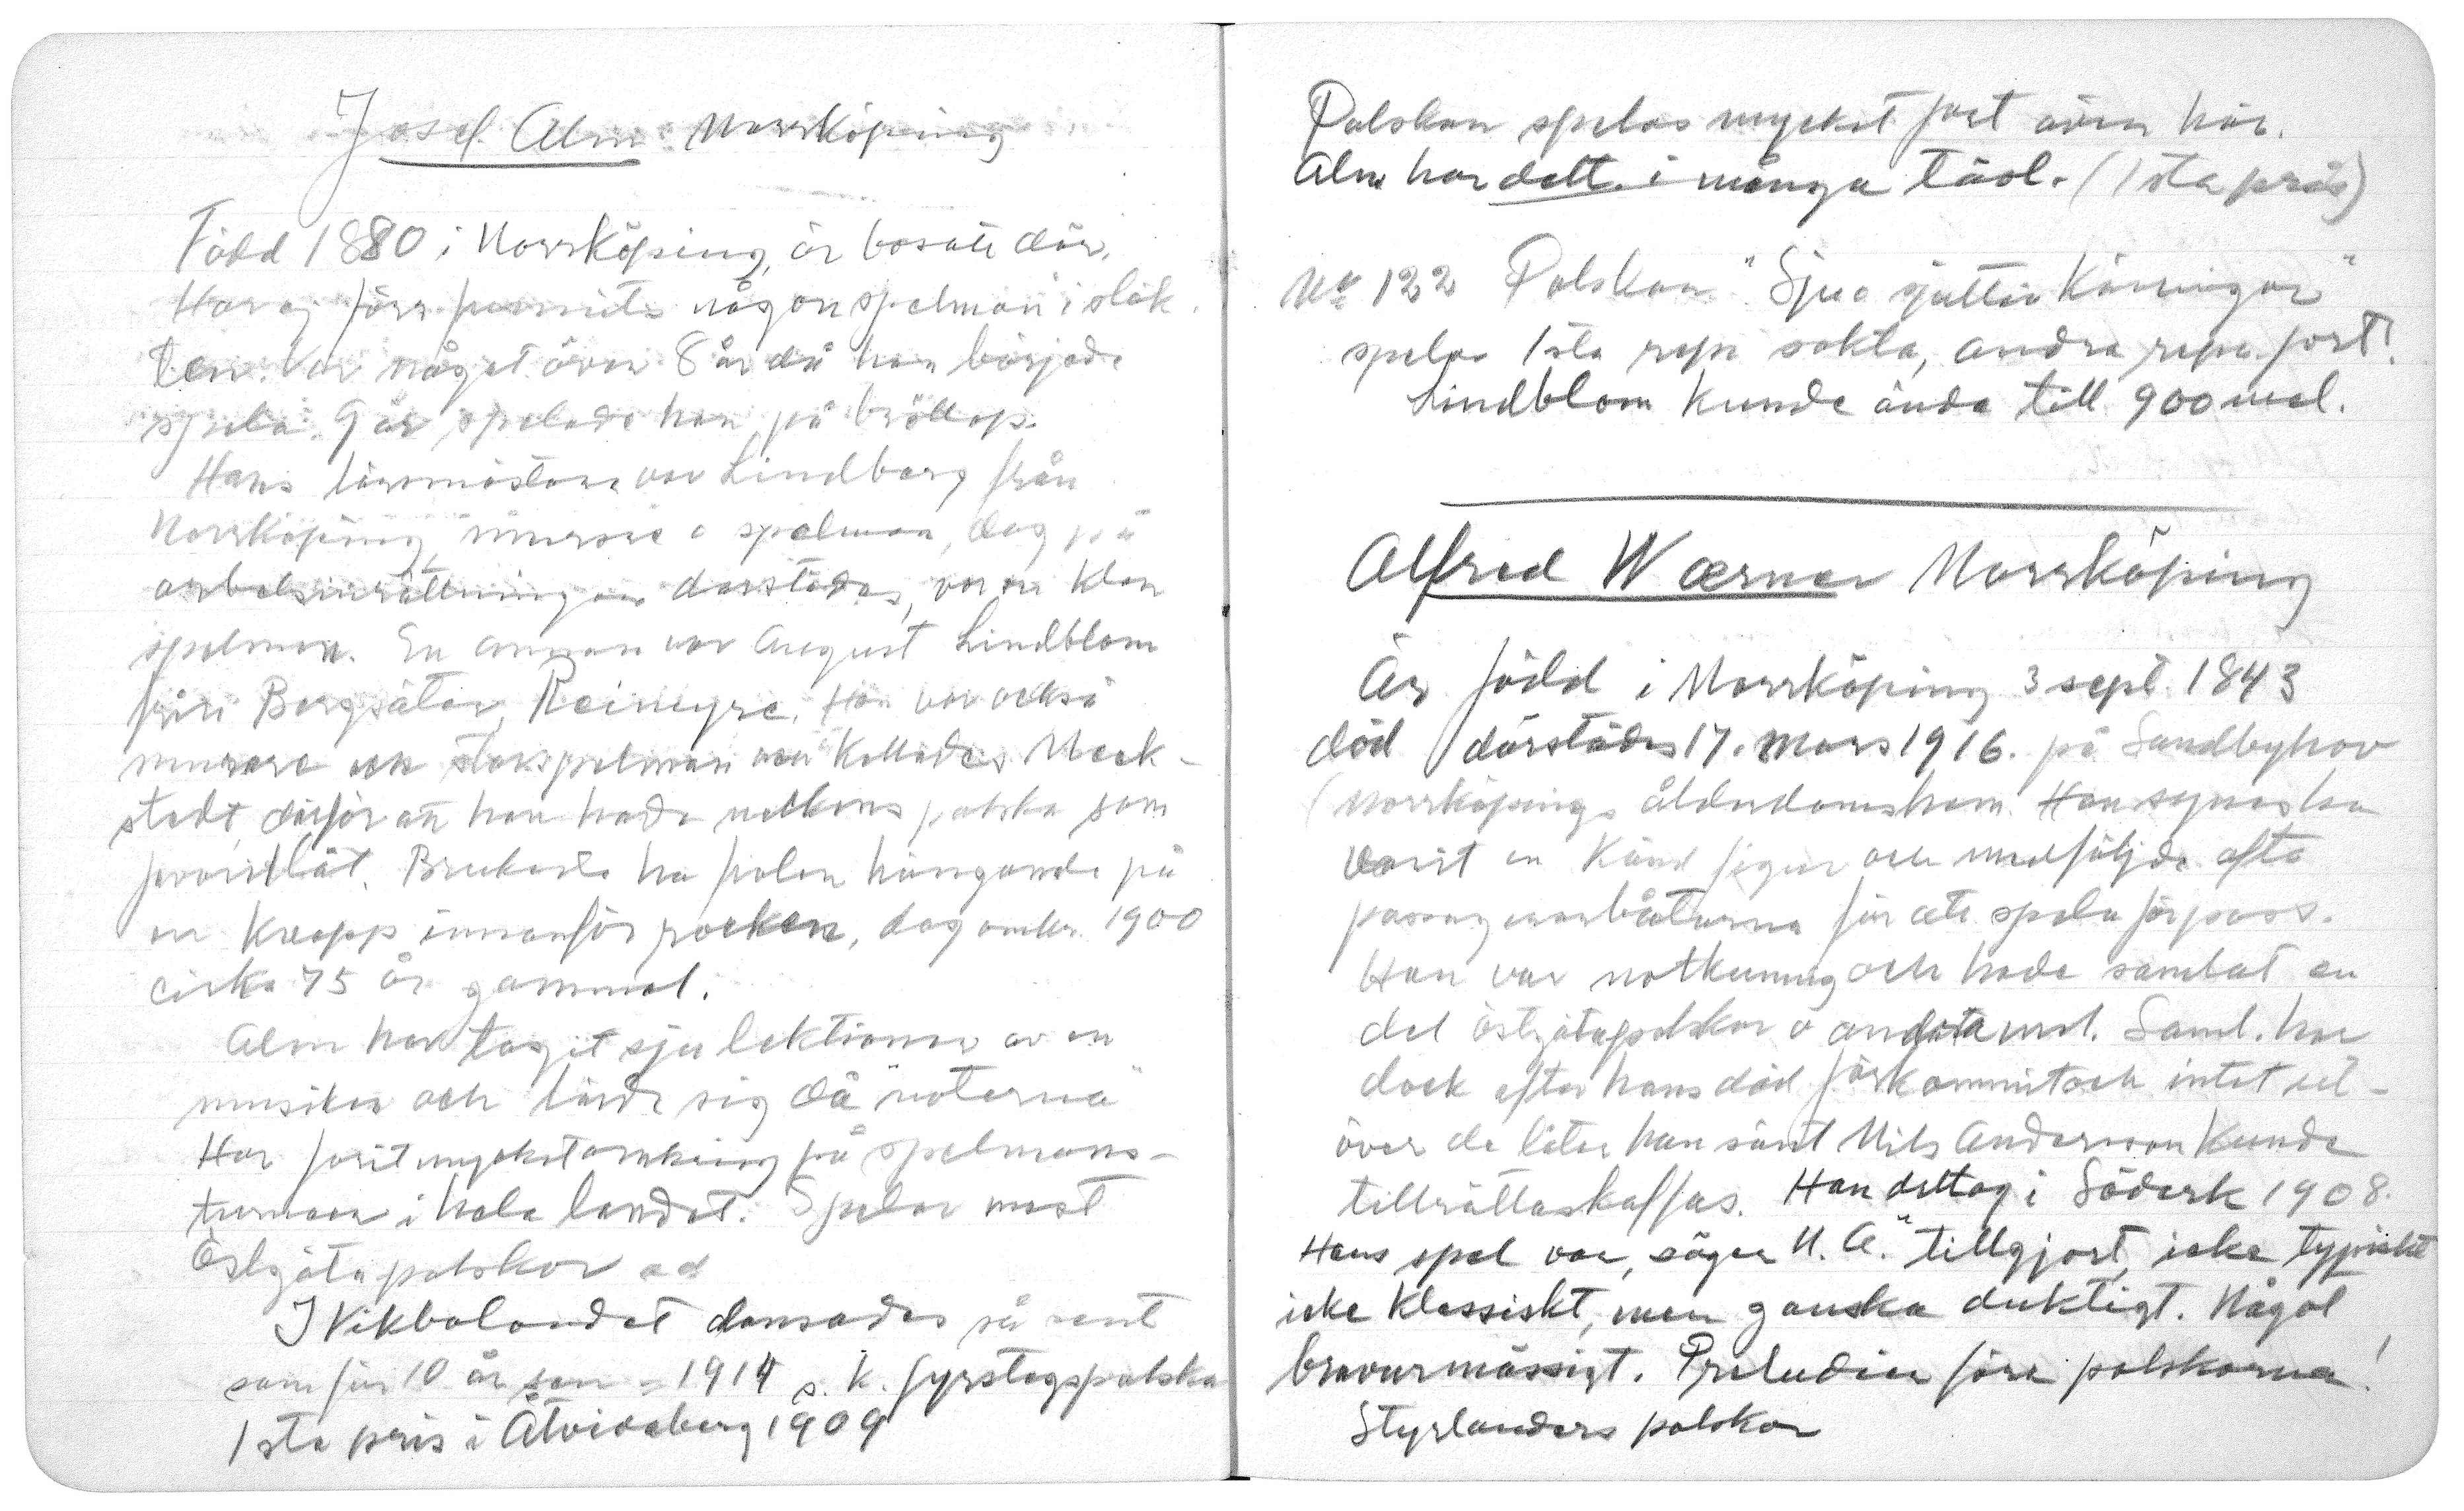 Josef Alm Norrköping
Född 1880 i Norrköping, är bosatt där.
Har ej förr funnits någon spelman i släk-
ten. Var något över 8 år då han började
spela. 9 år spelade han på bröllop.
Hans läromästare var Lindberg från
Norrköping, murare o spelman, dog på
arbetsinrättningen därstädes, var en klen
spelman. En annan var August Lindblom
från Bergsäter, Reimyre. Han var också
murare och storspelman och kallades Neck-
stedt, därför att han hade neckens polska som
favoritlåt. Brukade ha fiolen hängande på
en knapp innanför rocken, dog omkr. 1900
cirka 75 år gammal.
Alm har tagit sju lektioner av en
musiker och lärde sig då "noterna"
Har farit mycket omkring på spelmans-
turneer i hela landet. Spelar mest
Östgötapolskor ad
I Vikbolandet dansades så sent
som för 10 år sen = 1914 s. k. fyrstegspolska
1sta pris i Åtvidaberg 1909
Polskan spelas mycket fort även här.
Alm har delt. i många tävl. (1sta pris)
No 122 Polskan "Sju sjuttio käringar"
spelas 1sta repr sakta, andra repr. fort!
Lindblom kunde ända till 900 mel.
Alfred Wærner Norrköping
Är född i Norrköping 3 sept. 1843
död därstädes 17. Mars 1916. på Sandbyhov
(Norrköpings ålderdomshem. Han synes ha
varit en känd figur och medföljde ofta
passagerarbåtarna för att spela för pass.
Han var notkunnig och hade samlat en
del Östgötapolskor o andra mel. Saml. har
dock efter hans död förkommit och intet ut-
över de låtar han sänt Nils Andersson kunde
tillrättaskaffas. Han deltog i Söderk 1908.
Hans spel var, säger N. A. "tillgjort, icke typiskt
icke klassiskt, men ganska duktigt. Något
bravurmässigt. Preludier före polskorna!
Styrlanders polskor